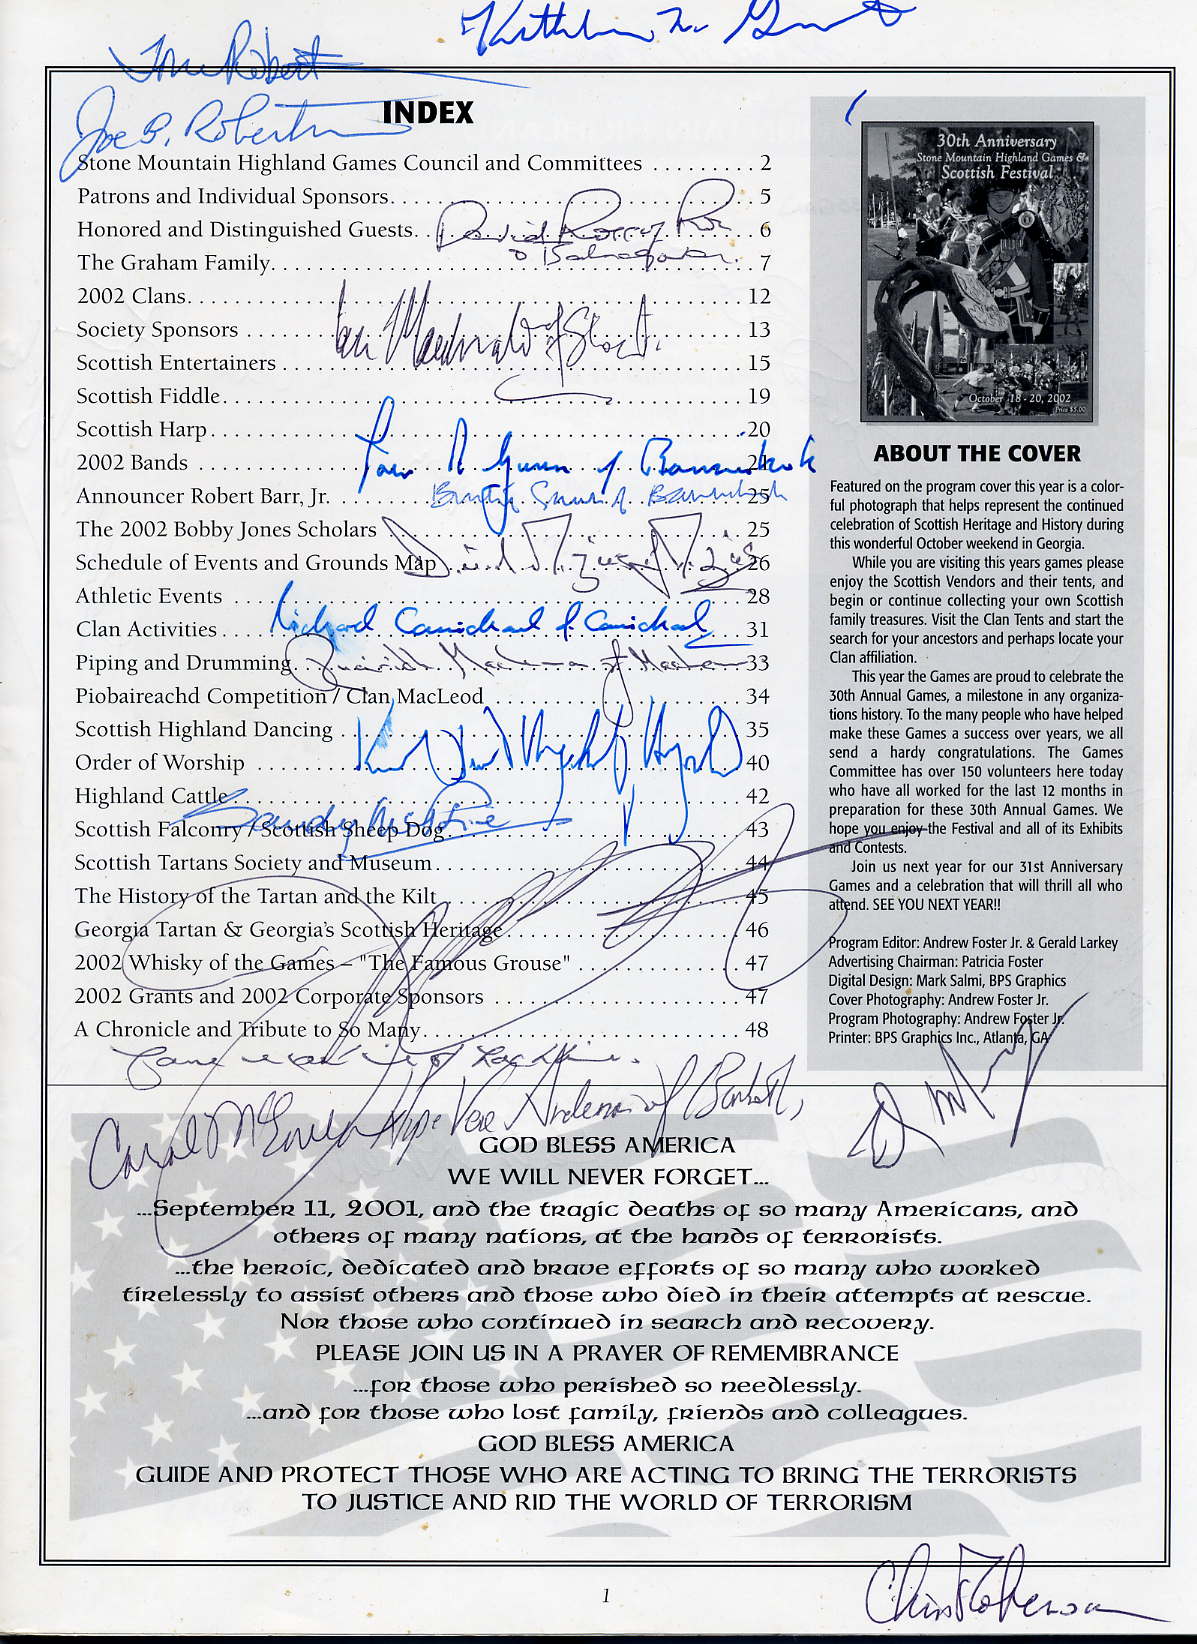 Joe B. Robert
INDEX
Stone Mountain Highland Games Council and Committees . . . . . . . . . 2
Patrons and Individual Sponsors. . . . . . . . . . . . . . . . . . . . . . . . . . . . . . . 5
Honored and Distinguished Guests. . . . . . . . . . . . . . . . . . . . . . . . . . . . . 6
David
The Graham Family. . . . . . . . . . . . . . . . . . . . . . . . . . . . . . . . . . . . . . . . 7
2002 Clans. . . . . . . . . . . . . . . . . . . . . . . . . . . . . . . . . . . . . . . . . . . . . . 12
Society Sponsors . . . . . . . . . . . . . . . . . . . . . . . . . . . . . . . . . . . . . . . . . 13
Ian Macdonald of
Scottish Entertainers . . . . . . . . . . . . . . . . . . . . . . . . . . . . . . . . . . . . . . 15
Scottish Fiddle. . . . . . . . . . . . . . . . . . . . . . . . . . . . . . . . . . . . . . . . . . . 19
Scottish Harp. . . . . . . . . . . . . . . . . . . . . . . . . . . . . . . . . . . . . . . . . . . . 20
2002 Bands . . . . . . . . . . . . . . . . . . . . . . . . . . . . . . . . . . . . . . . . . . . . . 21
Gunn of
Announcer Robert Barr, Jr. . . . . . . . . . . . . . . . . . . . . . . . . . . . . . . . . . . 25
The 2002 Bobby Jones Scholars . . . . . . . . . . . . . . . . . . . . . . . . . . . . . . 25
Schedule of Events and Grounds Map . . . . . . . . . . . . . . . . . . . . . . . . . 26
Athletic Events . . . . . . . . . . . . . . . . . . . . . . . . . . . . . . . . . . . . . . . . . . 28
Clan Activities. . . . . . . . . . . . . . . . . . . . . . . . . . . . . . . . . . . . . . . . . . . 31
Richard Carmichael of Carmichael
Piping and Drumming. . . . . . . . . . . . . . . . . . . . . . . . . . . . . . . . . . . . . 33
Piobaireachd Competition / Clan MacLeod . . . . . . . . . . . . . . . . . . . . . 34
Scottish Highland Dancing . . . . . . . . . . . . . . . . . . . . . . . . . . . . . . . . . 35
Order of Worship . . . . . . . . . . . . . . . . . . . . . . . . . . . . . . . . . . . . . . . . 40
Highland Cattle. . . . . . . . . . . . . . . . . . . . . . . . . . . . . . . . . . . . . . . . . . 42
Sandy
Scottish Falconry / Scottish Sheep Dog. . . . . . . . . . . . . . . . . . . . . . . . . 43
Scottish Tartans Society and Museum . . . . . . . . . . . . . . . . . . . . . . . . . 44
The History of the Tartan and the Kilt . . . . . . . . . . . . . . . . . . . . . . . . . 45
Georgia Tartan & Georgia's Scottish Heritage. . . . . . . . . . . . . . . . . . . . 46
2002 Whisky of the Games – "The Famous Grouse" . . . . . . . . . . . . . . 47
2002 Grants and 2002 Corporate Sponsors . . . . . . . . . . . . . . . . . . . . . 47
A Chronicle and Tribute to So Many. . . . . . . . . . . . . . . . . . . . . . . . . . . 48
30th Anniversary
Stone Mountain Highland Games &
Scottish Festival
October 18 - 20, 2002
Price $5.00
ABOUT THE COVER
Featured on the program cover this year is a color-
ful photograph that helps represent the continued
celebration of Scottish Heritage and History during
this wonderful October weekend in Georgia.
While you are visiting this years games please
enjoy the Scottish Vendors and their tents, and
begin or continue collecting your own Scottish
family treasures. Visit the Clan Tents and start the
search for your ancestors and perhaps locate your
Clan affiliation.
This year the Games are proud to celebrate the
30th Annual Games, a milestone in any organiza-
tions history. To the many people who have helped
make these Games a success over years, we all
send a hardy congratulations. The Games
Committee has over 150 volunteers here today
who have all worked for the last 12 months in
preparation for these 30th Annual Games. We
hope you enjoy the Festival and all of its Exhibits
and Contests.
Join us next year for our 31st Anniversary
Games and a celebration that will thrill all who
attend. SEE YOU NEXT YEAR!!
Program Editor: Andrew Foster Jr. & Gerald Larkey
Advertising Chairman: Patricia Foster
Digital Design: Mark Salmi, BPS Graphics
Cover Photography: Andrew Foster Jr.
Program Photography: Andrew Foster Jr.
Printer: BPS Graphics Inc., Atlanta, GA
Carol Hope Vere Anderson of
GOD BLESS AMERICA
WE WILL NEVER FORGET...
...September 11, 2001, and the tragic deaths of so many Americans, and
others of many nations, at the hands of terrorists.
...the heroic, dedicated and brave efforts of so many who worked
tirelessly to assist others and those who died in their attempts at rescue.
Nor those who continued in search and recovery.
PLEASE JOIN US IN A PRAYER OF REMEMBRANCE
...for those who perished so needlessly.
...and for those who lost family, friends and colleagues.
GOD BLESS AMERICA
GUIDE AND PROTECT THOSE WHO ARE ACTING TO BRING THE TERRORISTS
TO JUSTICE AND RID THE WORLD OF TERRORISM
1
Chris Roberson